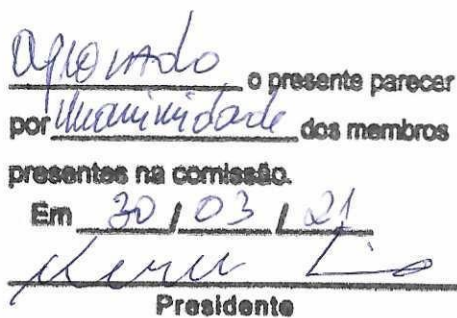 aprovado o presente parecer
por unanimidade dos membros
presentes na comissão.
Em 30 / 03 / 21
Presidente